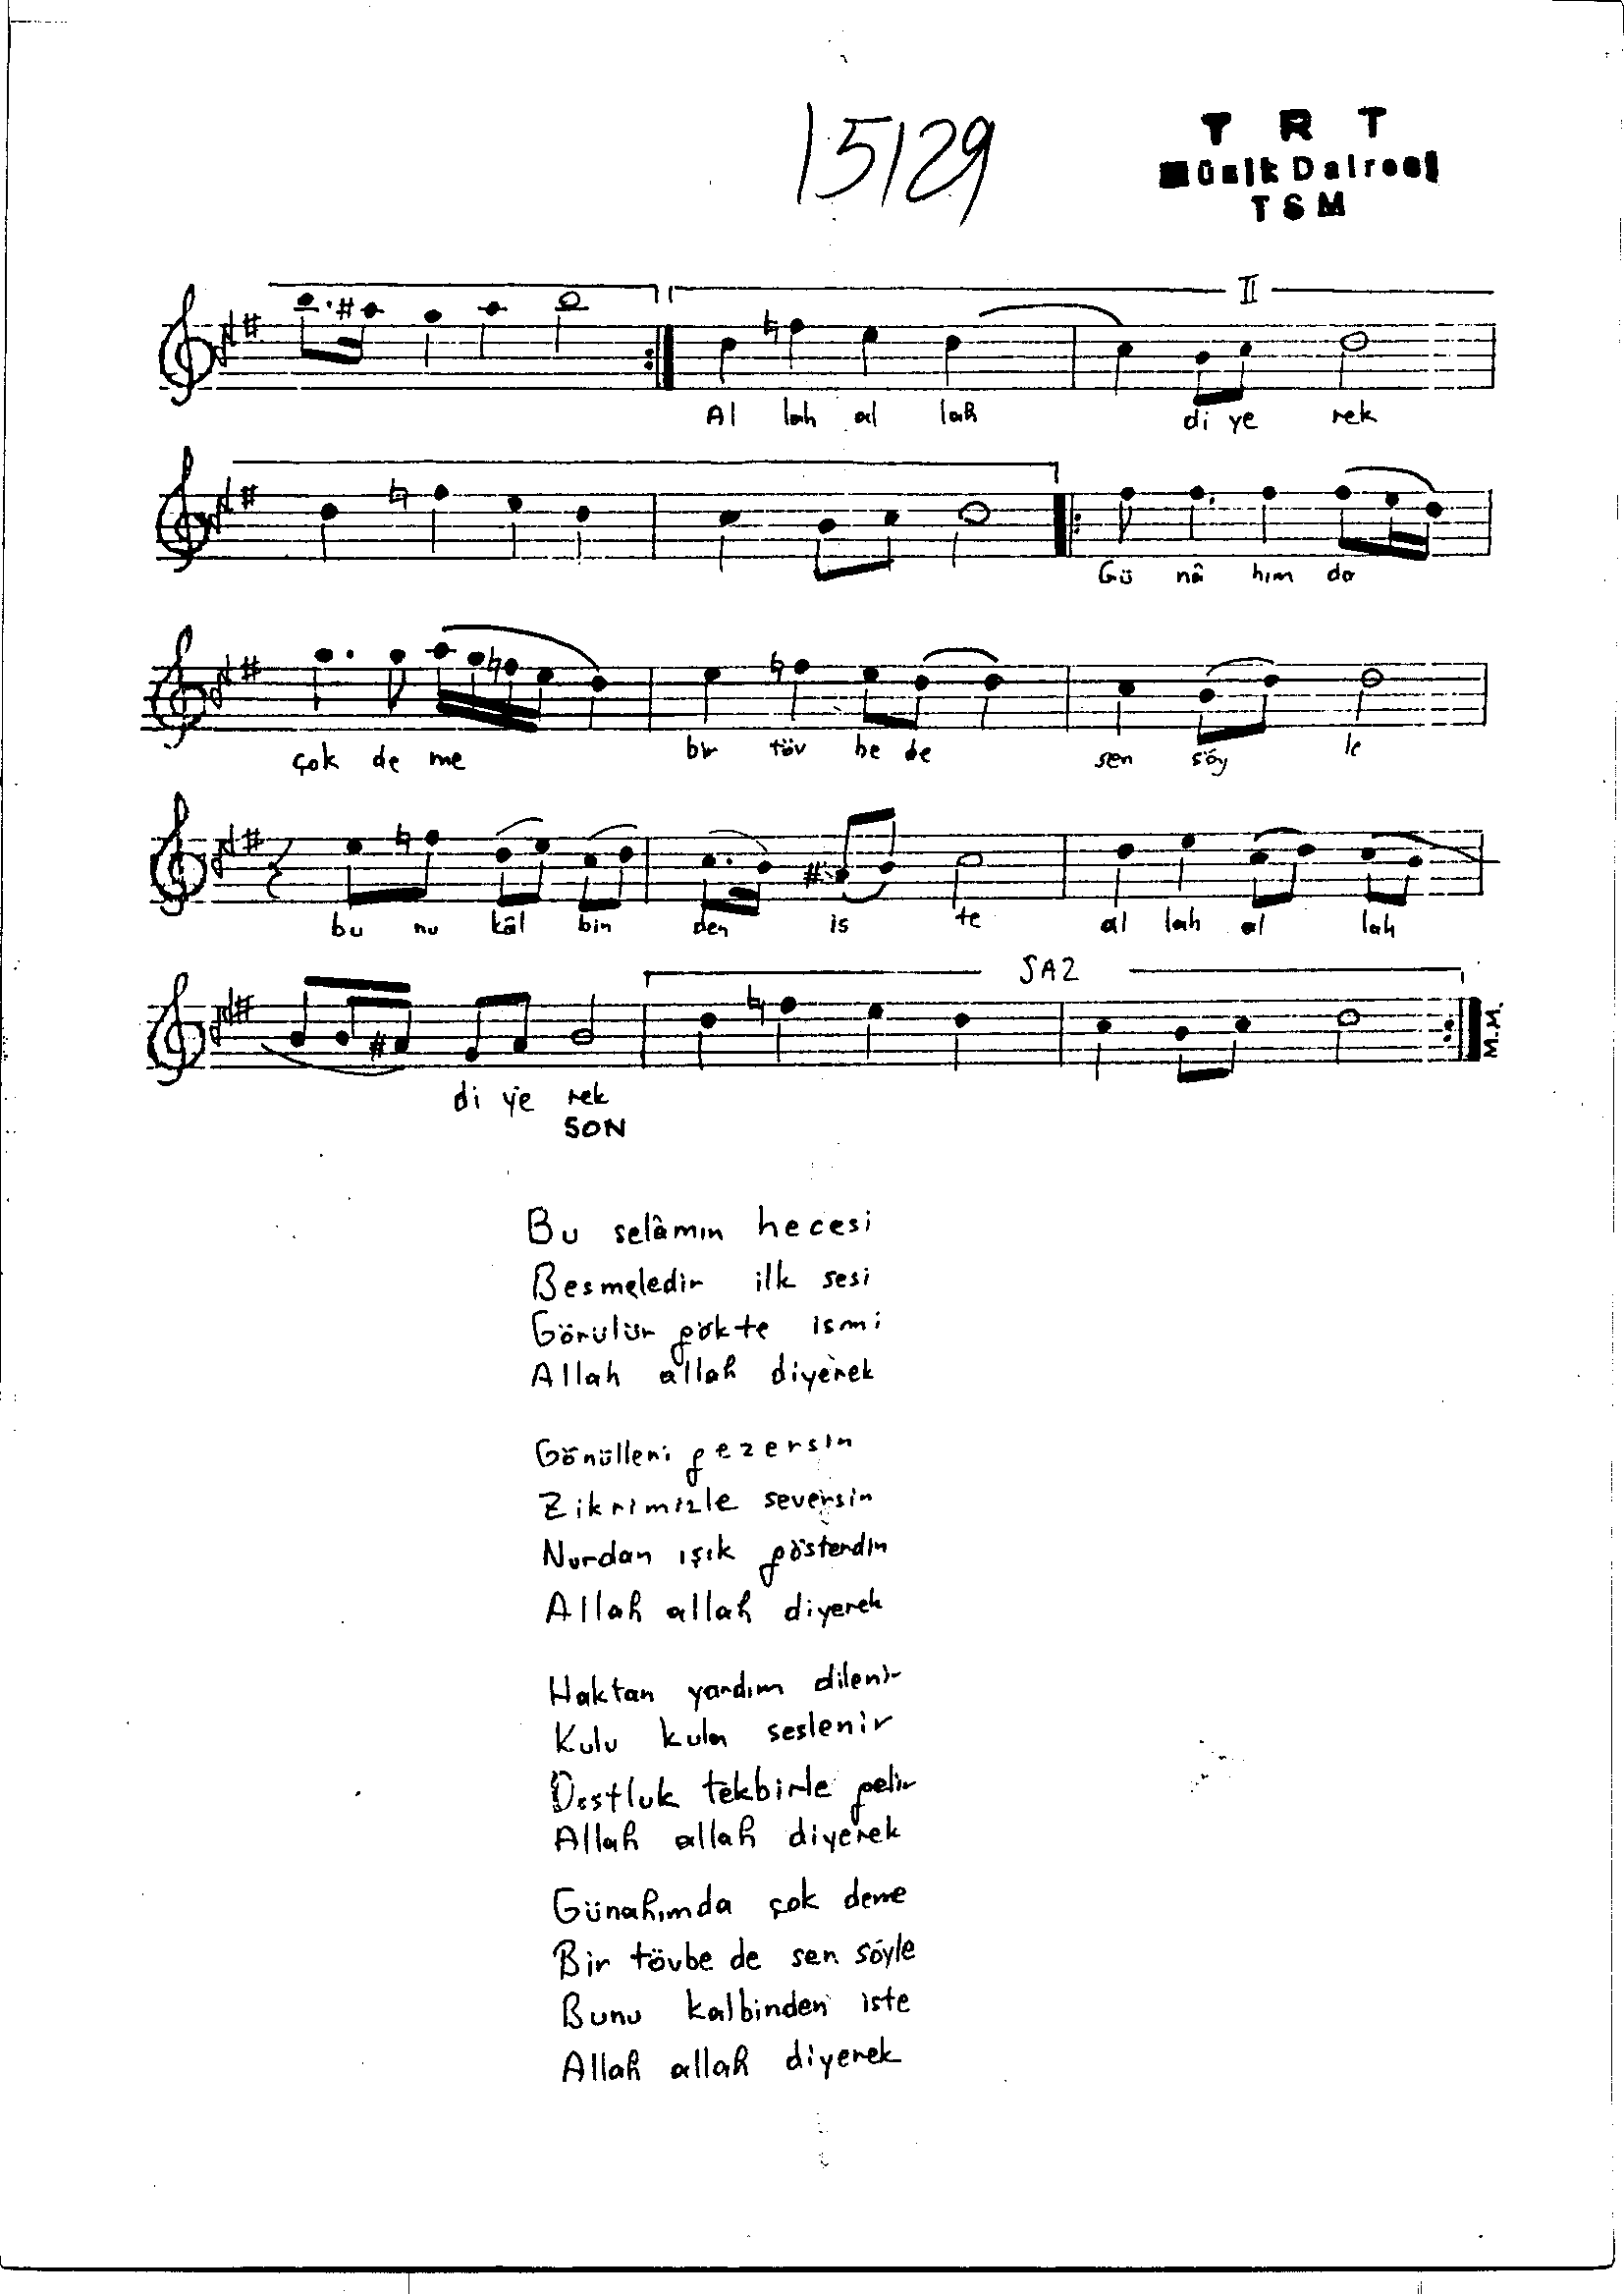 15129
T R T
Müzik Dairesi
TSM
II
Al lah al lah di ye rek
Gü nâ hım da
çok de me bir töv be de sen söy le
bu nu kâl bin den is te al lah al lah
SAZ
M.M.
di ye rek
SON
Bu selâmın hecesi
Besmeledir ilk sesi
Görülür gökte ismi
Allah allah diyerek
Gönülleri gezersin
Zikrimizle seversin
Nurdan ışık gösterdin
Allah allah diyerek
Haktan yardım dilenir
Kulu kula seslenir
Dostluk tekbirle gelir
Allah allah diyerek
Günahımda çok deme
Bir tövbe de sen söyle
Bunu kalbinden iste
Allah allah diyerek